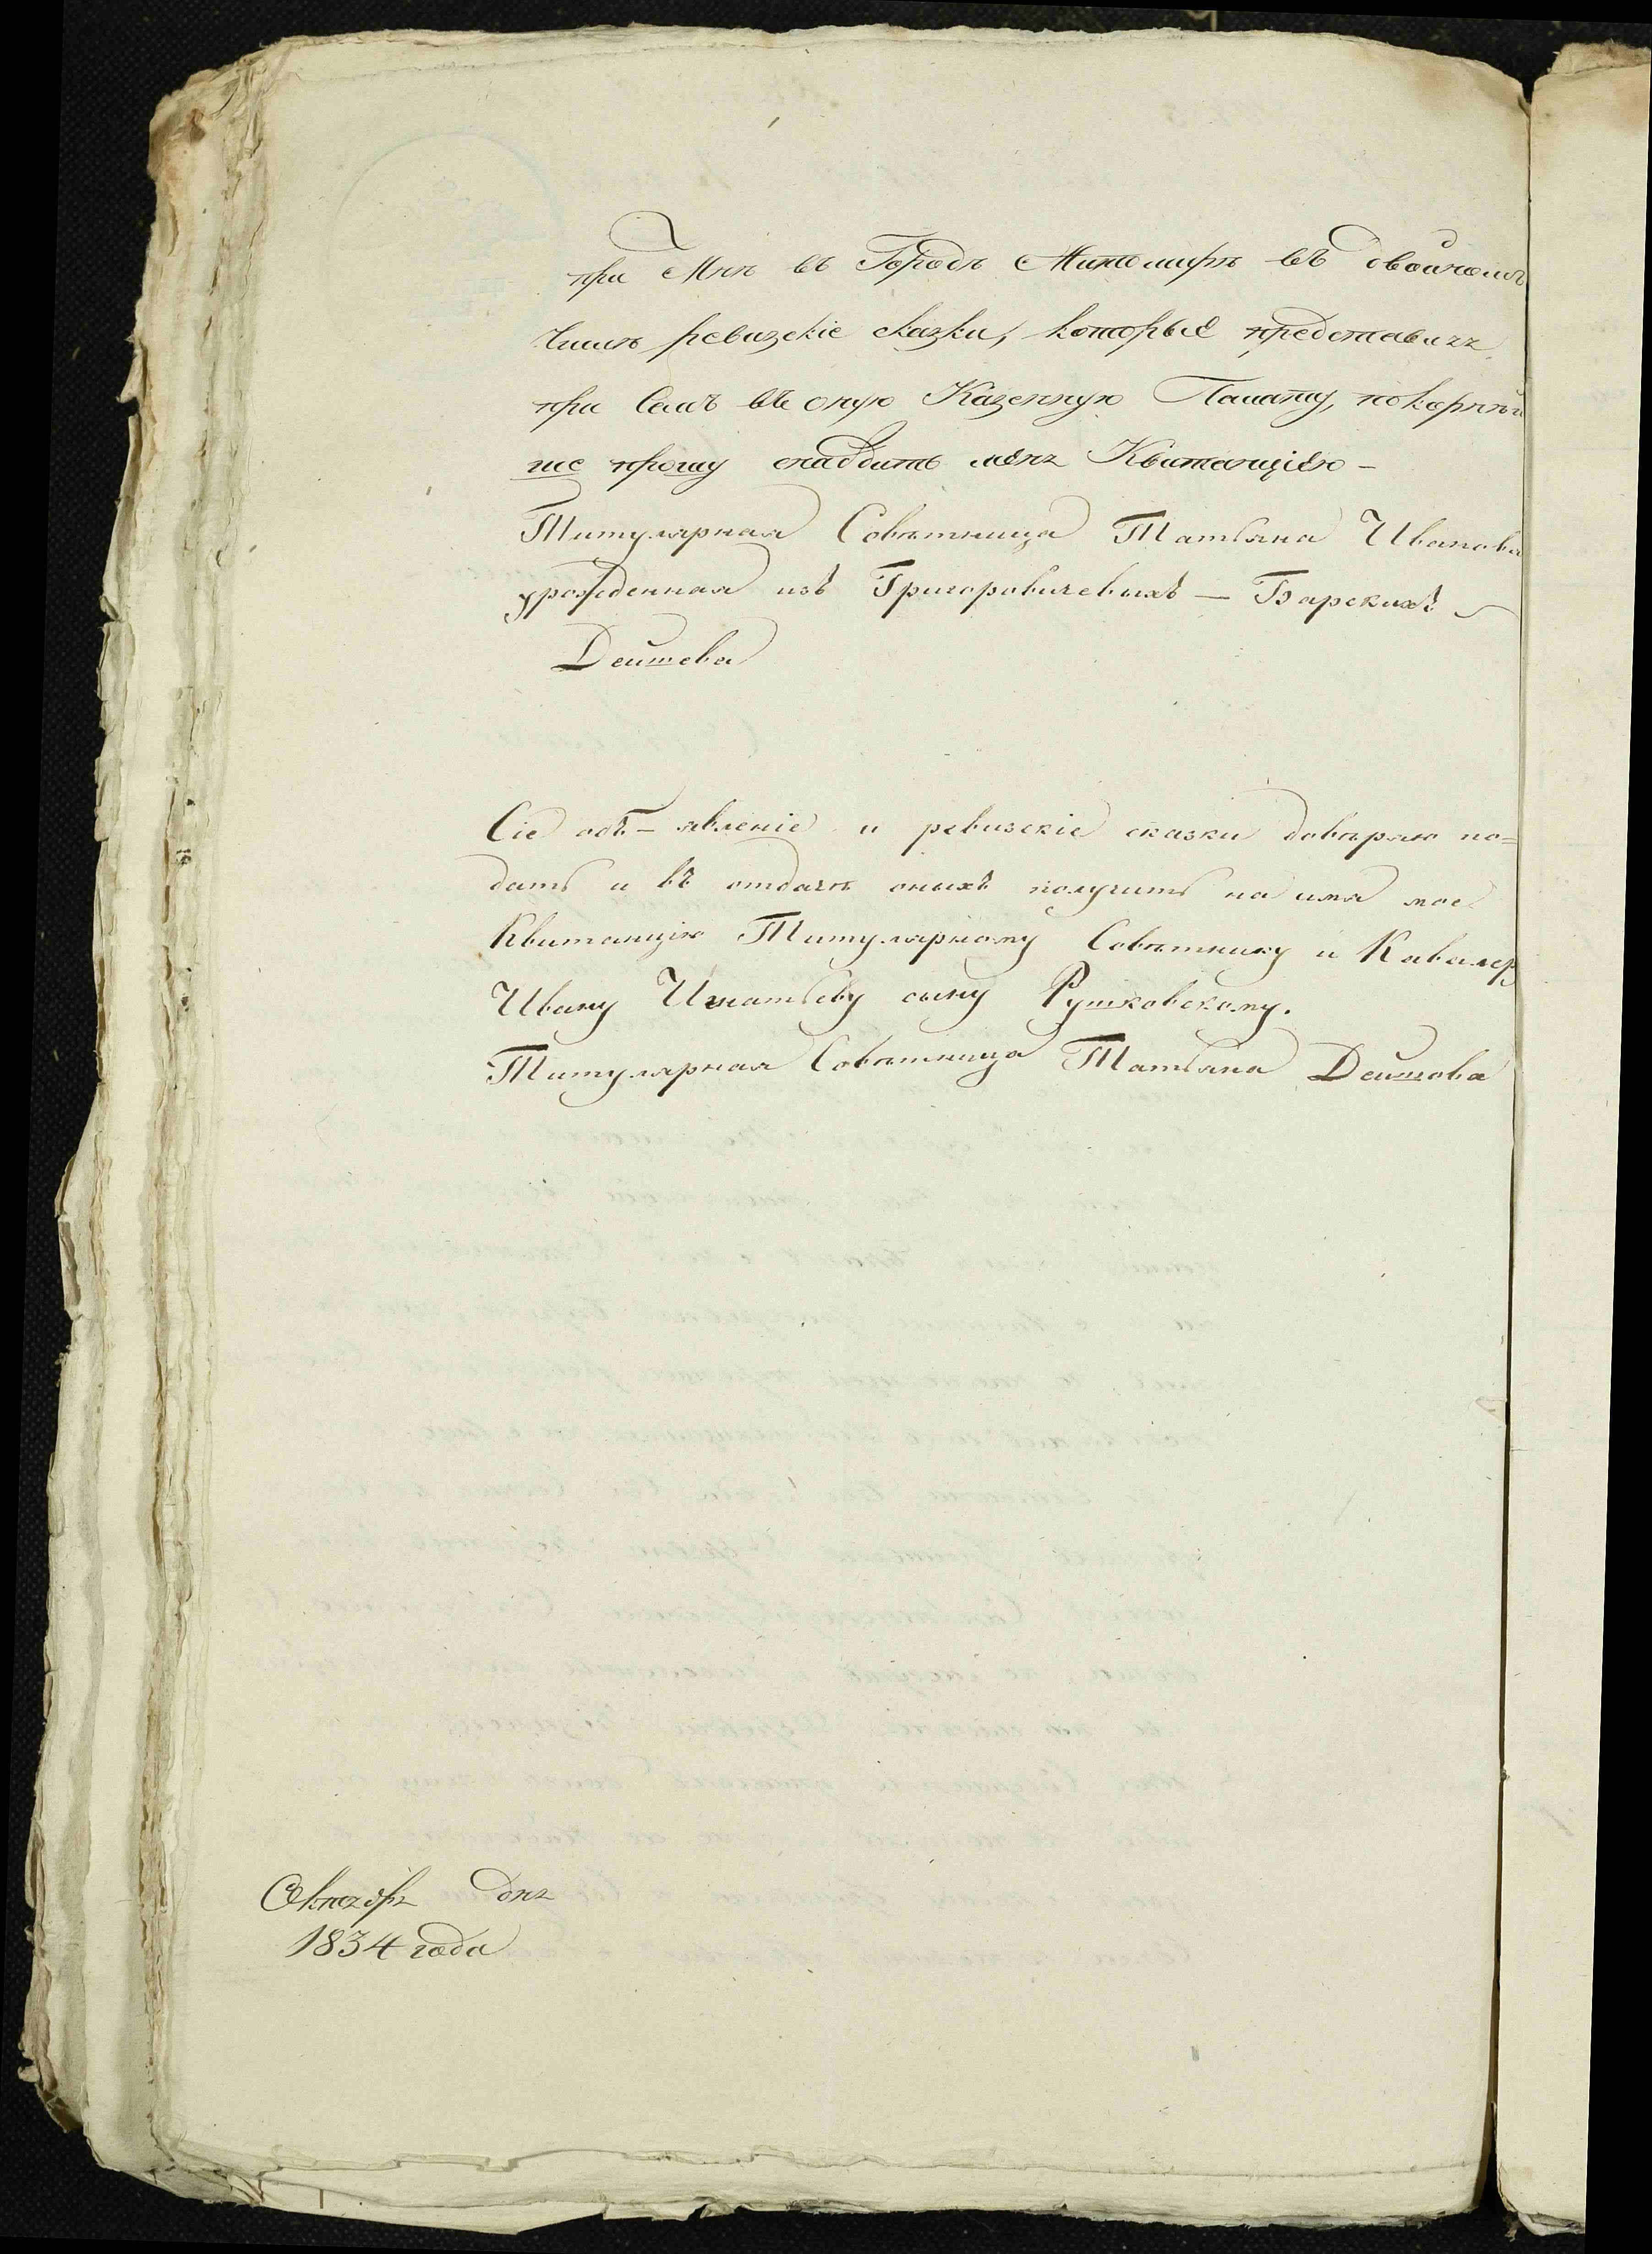 при Мнѣ въ Городѣ Житомирѣ въ двойномъ
Числѣ ревизскіе сказки, которые представляя
при Семъ въ оную Казенную Палату, покорнѣй
ше прошу снабдить меня Квитанціею —
Титулярная Совѣтница Татьяна Иванова
урожденная изъ Григоровичевыхъ — Барскихъ
Деишева
Сіе объ-явленіе и ревизскіе сказки довѣряю по=
дать и въ отдачѣ оныхъ получить на имя мое
Квитанцію Титулярному Совѣтнику и Кавалеру
Ивану Игнатьеву сыну Рушковскому.
Титулярная Совѣтница Татьяна Деишова
Октября дня
1834 года